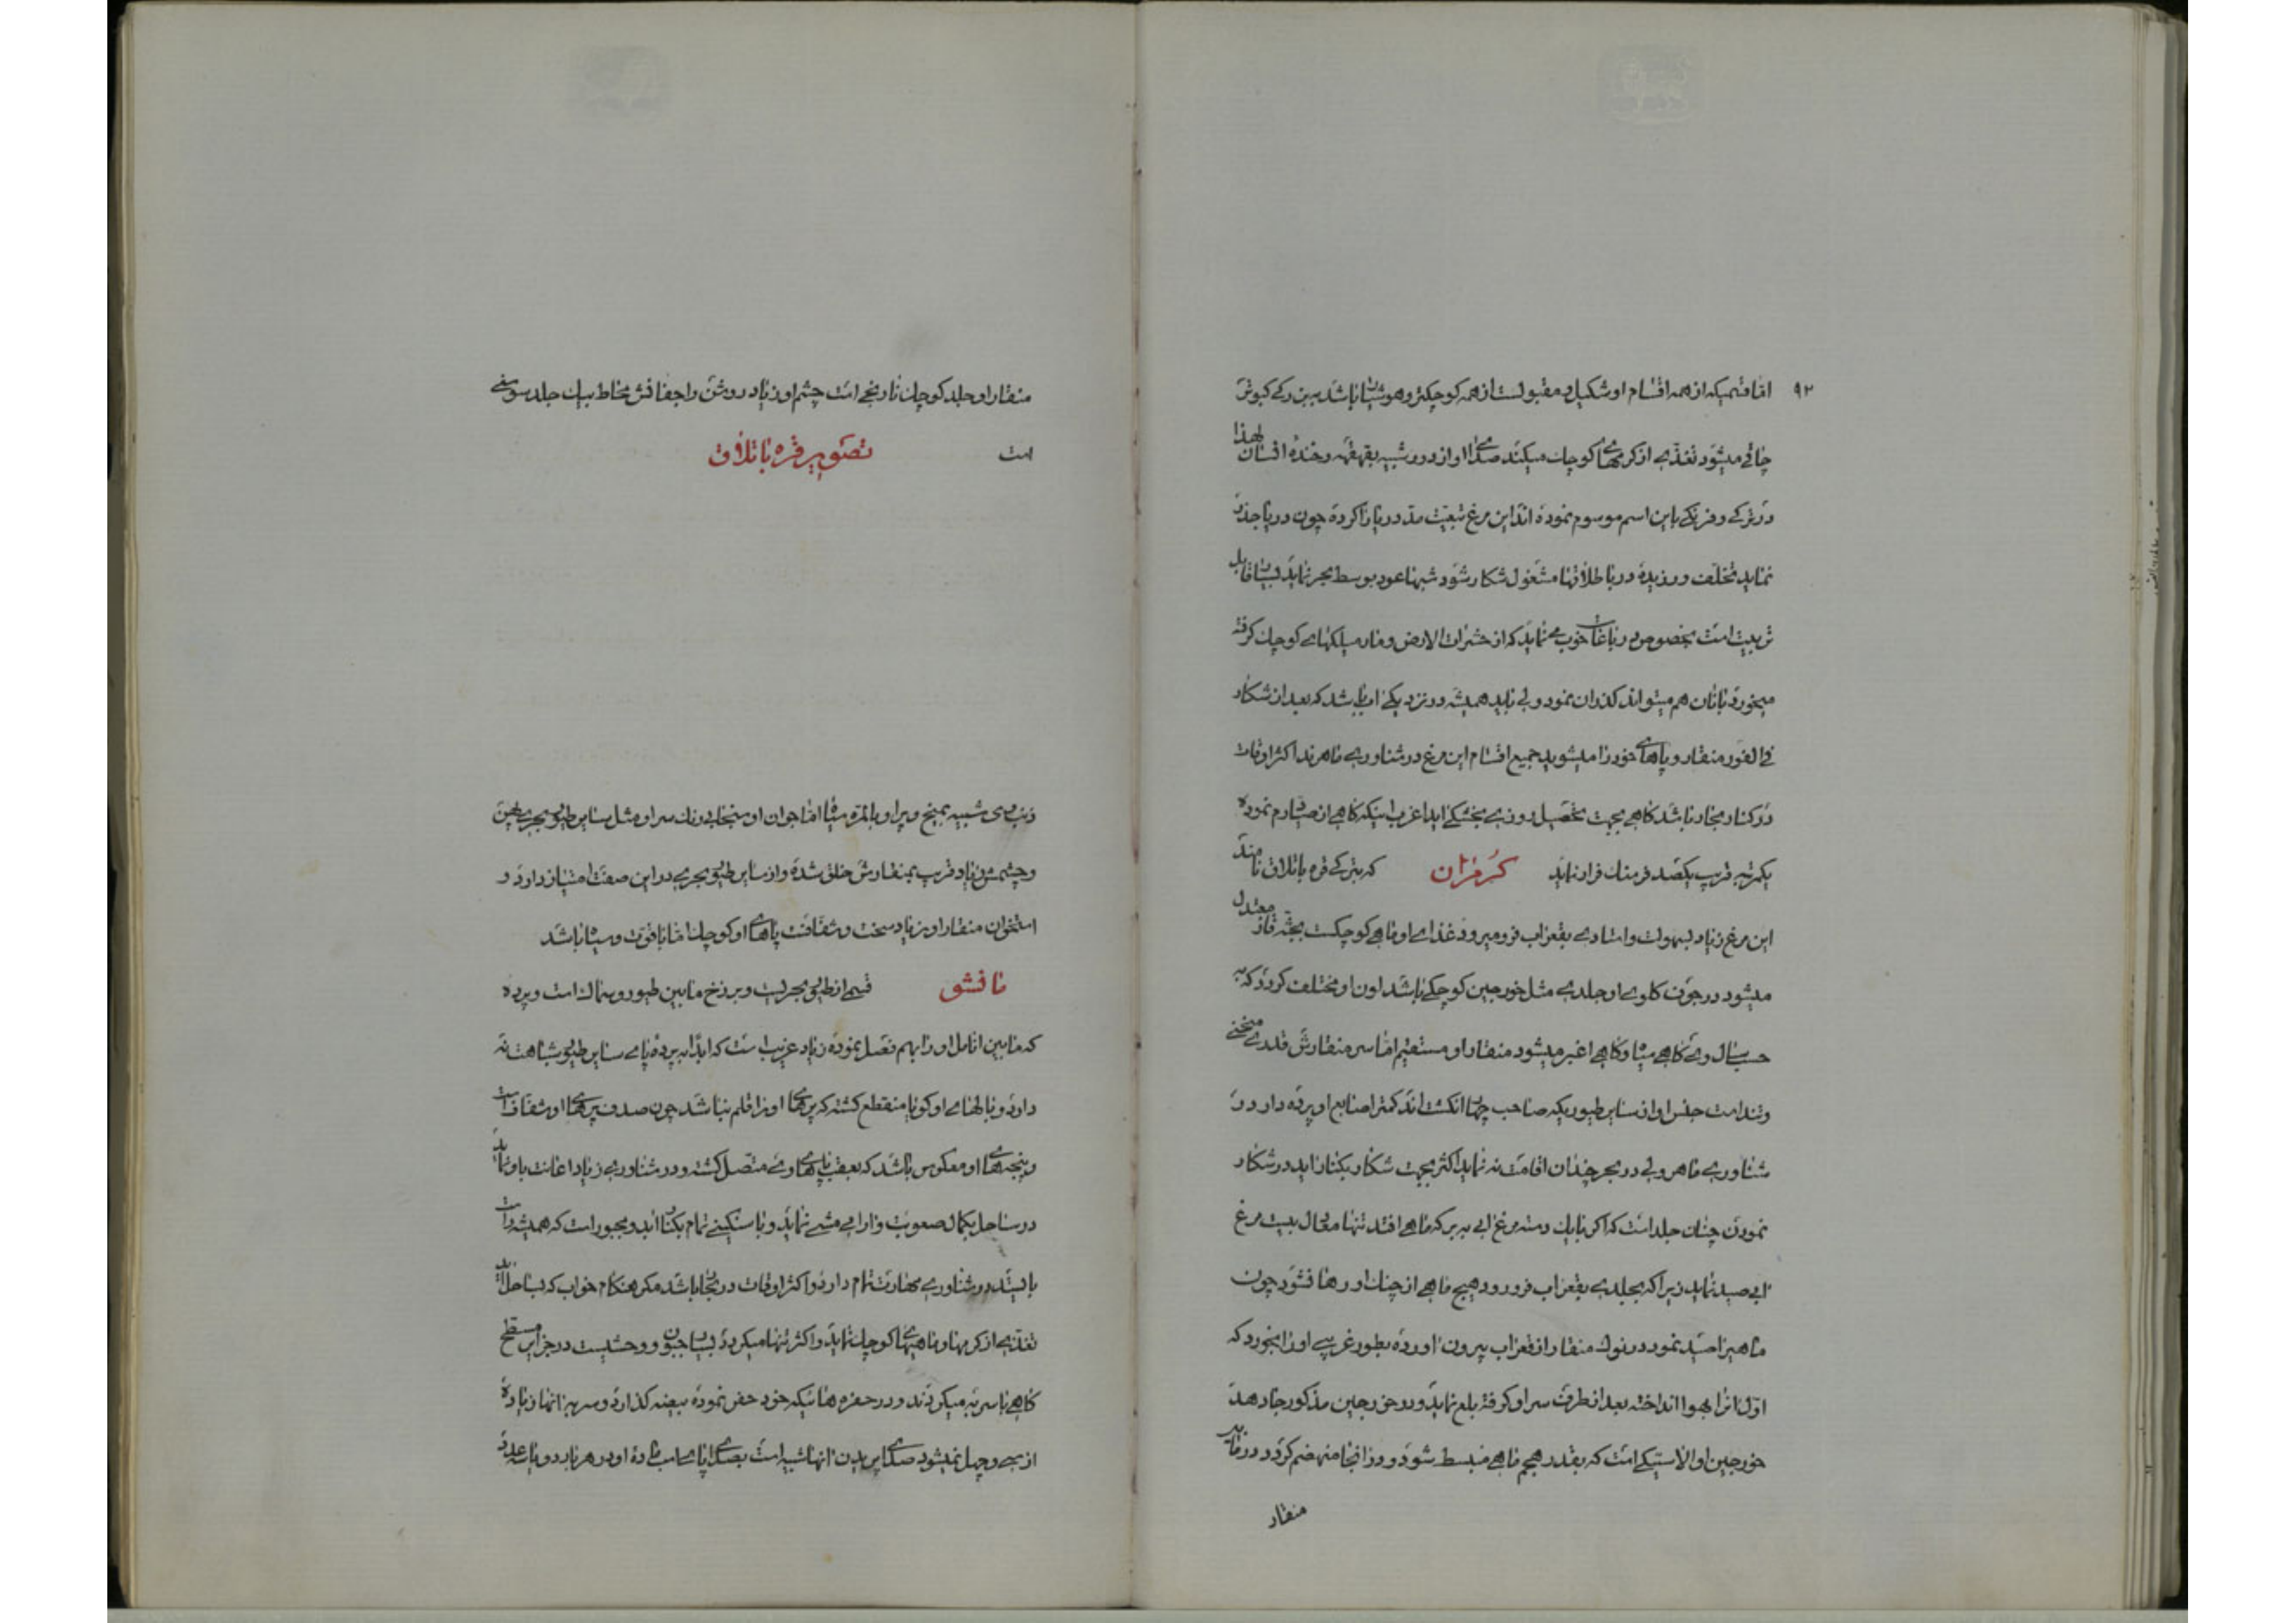 ۹۲
اما قسمیکه از همه اقسام او شکیل و مقبولست از همه کوچکتر و هوشیار باشد ببزرکی کبوتر
چاقی میشود تغذیه از کرمهای کوچک میکند صدای او از دور شبیه بقهقهه و خنده انسان لهذا
در ترکی و فرنکی باین اسم موسوم نموده اند این مرغ تبعیت مد دریا را کرده چون دریا جذر
نماید تخلف ورزیده در باطلاقها مشغول شکار شود شبها عود بوسط بحر نماید بسیار قابل
تربیت است بخصوص در باغات خوب می نماید که از حشرات الارض و مار میلکهای کوچک کرفته
میخورد با نان هم میتواند کذران نمود ولی باید همیشه در نزدیکی اب باشد که بعد از شکار
فی الفور منقار و پاهای خود را میشوید جمیع اقسام این مرغ در شناوری ماهرند اکثر اوقات
در کنار بحار باشد کاهی بجهت تحصیل روزی بخشکی اید اغرب اینکه کاهی از صیاد رم نموده
یکمرتبه قریب یکصد فرسنک فرار نماید کرمزان که بترکی قره باتلاق نامند
این مرغ زیاد بسهولت و استادی بقعر اب فرو میرود غذای او ماهی کوچکست بجثه قاز معتدل
میشود در جوف کلوی او جلدی مثل خورجین کوچکی باشد لون او مختلف کردد که به
حسب سال وی کاهی سیاه و کاهی اغبر میشود منقار او مستقیم اما سر منقارش قدری منحنی
و تند است جنس او از سایر طیوریکه صاحب چهار انکشت اند کمتر اصابع او پرده دار در
شناوری ماهر ولی در بحر چندان اقامت نه نماید اکثر بجهت شکار بکنار اید در شکار
نمودن چنان جلد است که اکر با یک دسته مرغ ابی به برکه ماهی افتد تنها معادل بیست مرغ
ابی صید نماید زیرا که بجلدی بقعر اب فرو رود هیچ ماهی از چنک او رها نشود چون
ماهیرا صید نمود در نوک منقار از قعر اب بیرون اورده بطور غریبی او را بخورد که
اول انرا بهوا انداخته بعد از طرف سر او کرفته بلع نماید و در خورجین مذکور جا دهد
خورجین او الاستیکی است که بقدر حجم ماهی منبسط شود و در انجا منهضم کردد در زیر
منقار
منقار او جلد کوچک نارنجی است چشم او زیاد روشن و اجفانش محاط بیک جلد سوسنی
است تصویر قره باتلاق
ذنب وی شبیه بمیخ و پر او بالمره سیاه اما جوان او سنجابی رنک سر او مثل سایر طیور بحری پهن
و چشمش زیاد قریب بمنقارش خلق شده و از سایر طیور بحری در این صفت امتیاز دارد و
استخوان منقار او زیاد سخت و شفافست پاهای او کوچک اما با قوت و سیاه باشد
مانشق قسمی از طیور بحریست و برزخ مابین طیور و سماک است و پرده
که مابین انامل او را بهم فصل نموده زیاد غریب است که ابدا به پرده پای سایر طیور شباهت نه
دارد و بالهای او کویا منقطع کشته که پرهای او را قلم نباشد چون صدف پرهای او شفاف است
و پنجه های او معکوس باشد که بعقب پاهای وی متصل کشته و در شناوری زیاد اعانت باو نماید
در ساحل بکمال صعوبت و ارامی مشی نماید و با سنکینی تمام بکنار اید و مجبور است که همیشه راست
بایستد در شناوری مهارت تمام دارد و اکثر اوقات در بحار باشد مکر هنکام خواب که بساحل اید
تغذیه از کرمها و ماهیهای کوچک نماید و اکثر تنها میکردد بسیار جبون و وحشیست در جزایر مسطح
کاهی با سربه میکردند و در حفره هائیکه خود حفر نموده بیضه کذارد و سربه انها زیاده
از سی و چهل نمیشود صدای پریدن انها شبیه است بصدای پای اسب ماده او در هر بار دو یا سه عدد